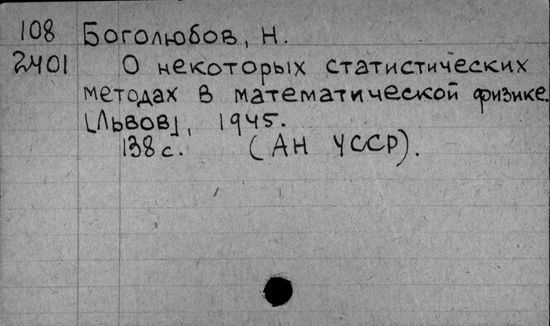 108 Боголюбов, Н.
2401 О некоторых статистических
методах в математической физике.
[Львов], 1945.
138 с. (АН УССР).